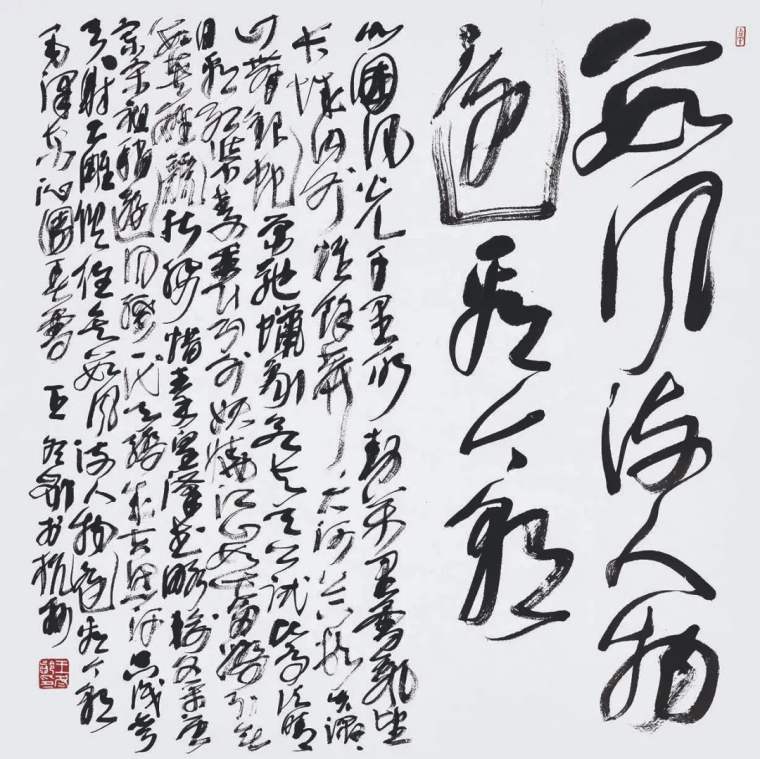 數風流人物
還看今朝
北國風光千里冰封萬里雪飄望
長城内外惟餘莽莽大河上下頓失滔滔
山舞銀蛇原馳蠟象欲與天公試比高須晴
日看紅裝素裹分外妖嬈江山如此多嬌引無
數英雄競折腰惜秦皇漢武略輸文采唐
宗宋祖稍遜風騷一代天驕成吉思汗只識彎
弓射大雕俱往矣數風流人物還看今朝
毛澤東沁園春雪 王冬齡書杭州